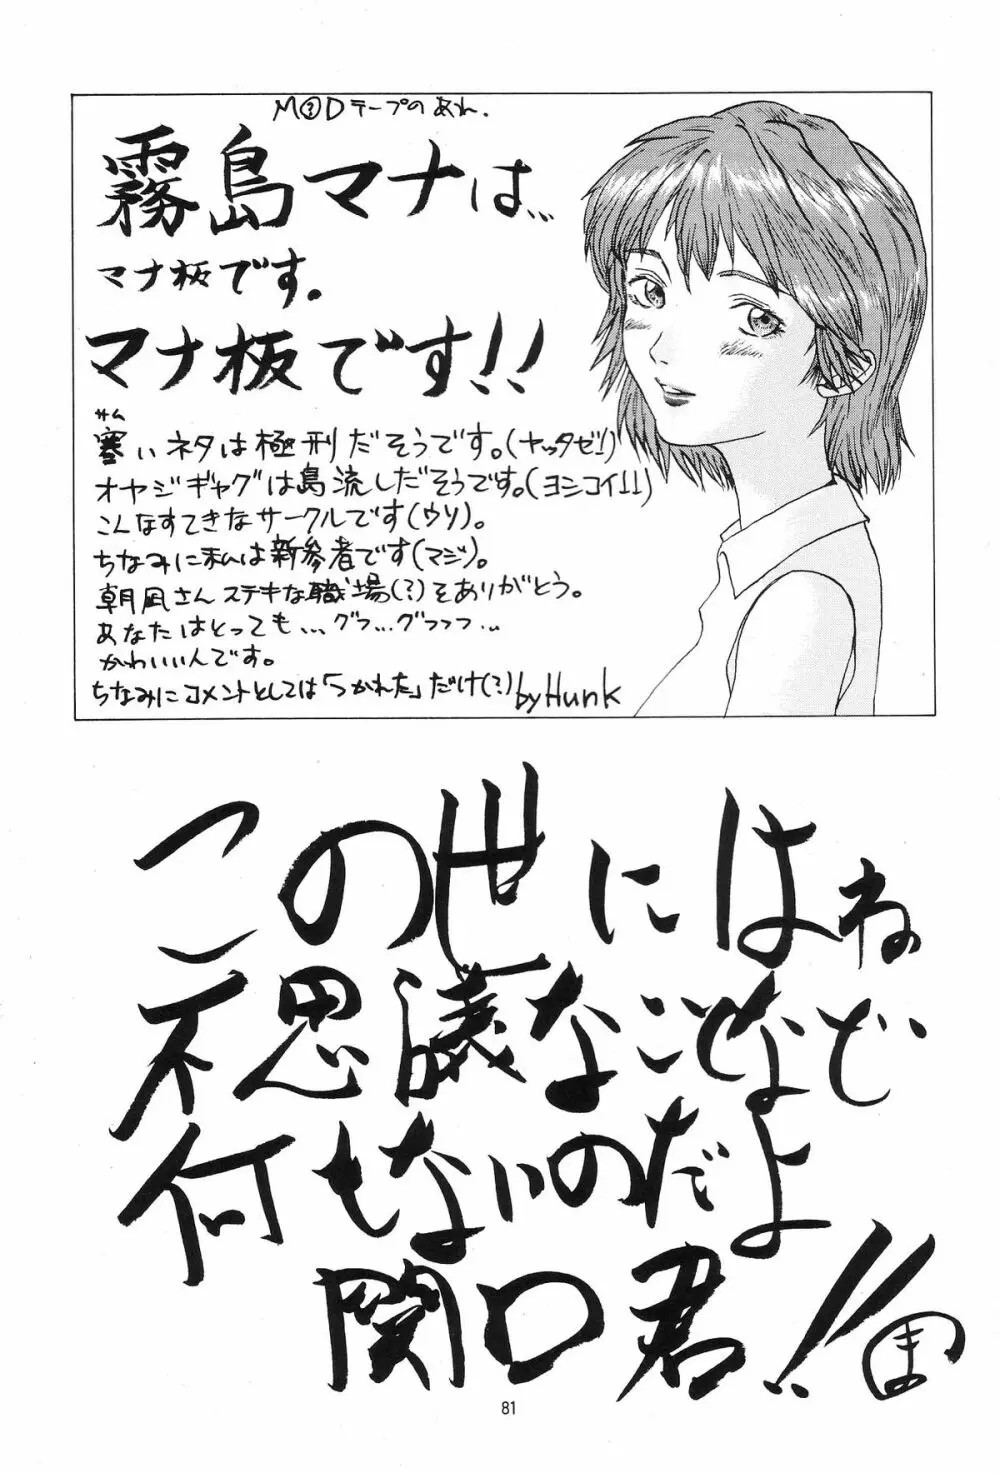 M?Dテープのあれ.
霧島マナは...
マナ板です。
マナ板です!!
サム
塞いネタは極刑だそうです。(ヤッタゼ!)
オヤジギャグは島流しだそうです。(ヨシコイ!!)
こんなすてきなサークルです(ウソ)。
ちなみに私は新参者です(マジ)。
朝凪さんステキな職場(?)をありがとう。
あなたはとっても...グフ...グフフフ...
かわいい人です。
ちなみにコメントとしては「つかれた」だけ(?) by Hunk
この世にはね
不思議なことなど
何もないのだよ
関口君!!
ま
81